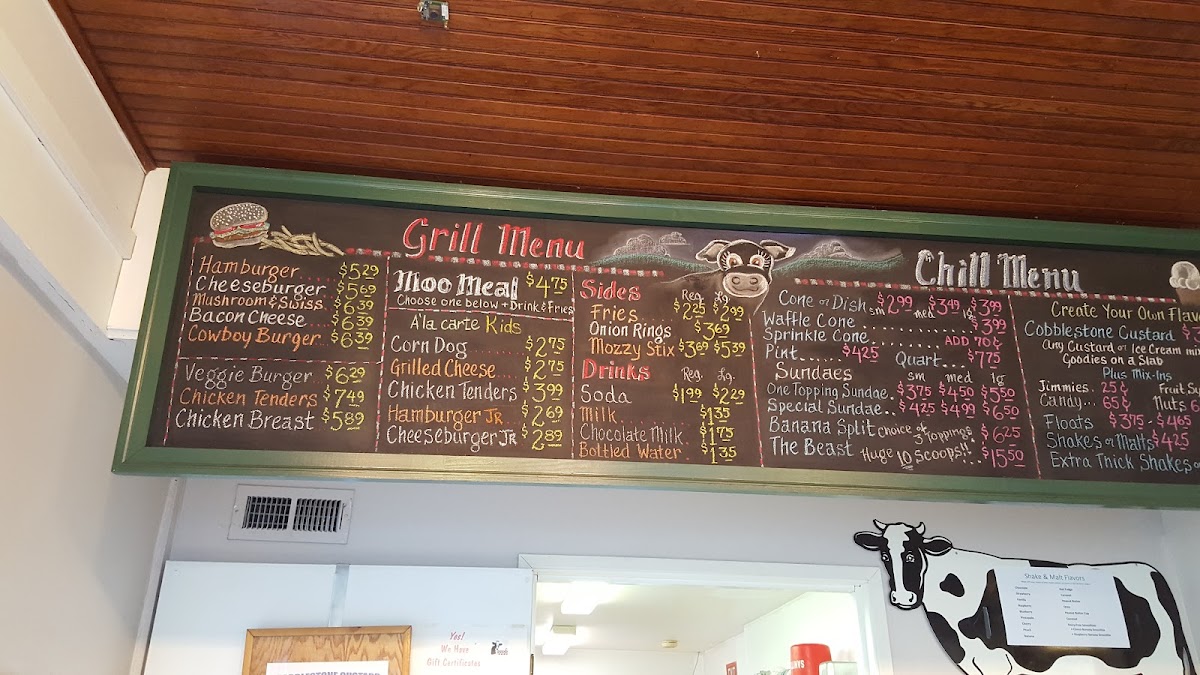 Grill Menu
Hamburger..... $5.29
Cheeseburger $5.69
Mushroom & Swiss.. $6.39
Bacon Cheese $6.39
Cowboy Burger.. $6.39
Veggie Burger.. $6.29
Chicken Tenders $7.49
Chicken Breast $5.89
Moo Meal $4.75
Choose one below + Drink & Fries
A'la carte Kids
Corn Dog..... $2.75
Grilled Cheese.... $2.75
Chicken Tenders $3.99
Hamburger JR. $2.69
Cheeseburger JR $2.89
Sides Reg. Lg.
Fries $2.25 $2.99
Onion Rings $3.69
Mozzy Stix $3.69 $5.39
Drinks Reg. Lg.
Soda $1.99 $2.29
Milk $1.35
Chocolate Milk. $1.75
Bottled Water.. $1.35
Chill Menu
Cone or Dish sm $2.99 med $3.49 lg $3.99
Waffle Cone............ $3.99
Sprinkle Cone....... ADD 70¢
Pint..... $4.25 Quart.... $7.75
Sundaes sm med lg
One Topping Sundae. $3.75 $4.50 $5.50
Special Sundae.. $4.25 $4.99 $6.50
Banana Split Choice of 3 Toppings $6.25
The Beast Huge 10 Scoops!!.. $15.50
Create Your Own Flavo
Cobblestone Custard $
any Custard or Ice Cream
Goodies on a Slab
Plus Mix-Ins
Jimmies.. 25¢ Fruit
Candy... 65¢ Nuts 6
Floats $3.75 - $4.65
Shakes or Malts $4.25
Extra Thick Shakes
Shake & Malt Flavors
Yes!
We Have
Gift Certificates